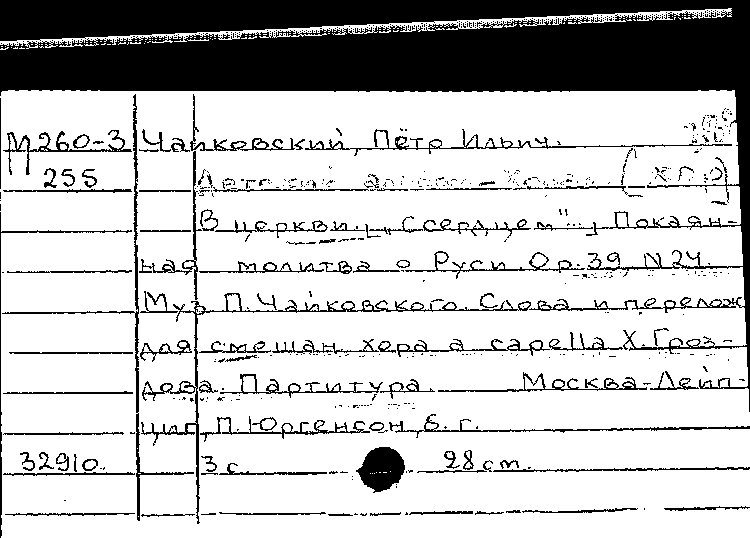 М260-3 Чайковский, Пётр Ильич.
255 Детский альбом-Хорал (ХПР)
В церкви. [„С сердцем"..] Покаян-
ная молитва о Руси. Op. 39, N 24.
Муз. П. Чайковского. Слова и перелож
для смешан. хора a capella Х. Гроз-
дова. Партитура. Москва-Лейп-
циг, П. Юргенсон, б. г.
32910. 3 с. 28 cm.